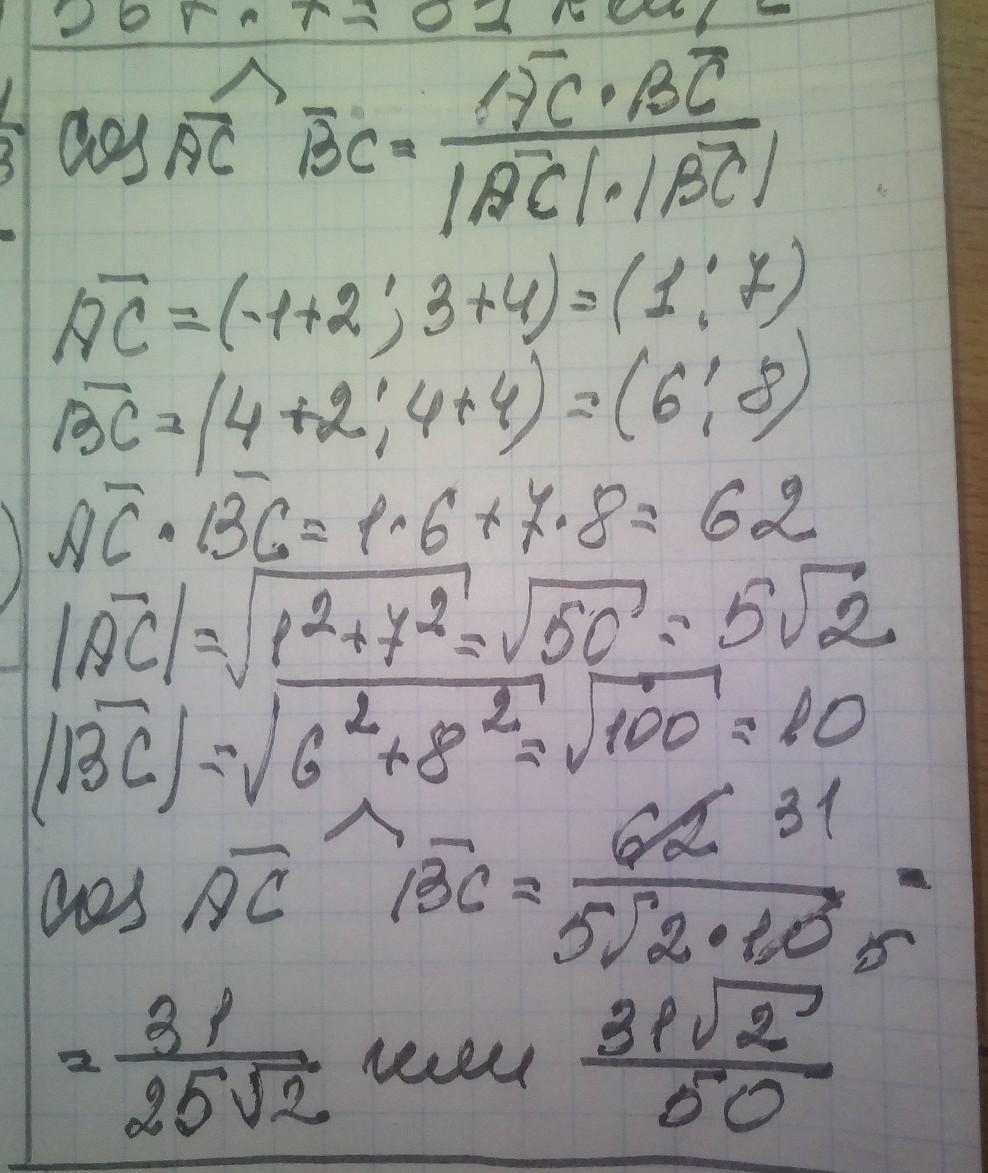 cos A̅C̅ ^ B̅C̅ = A̅C̅ · B̅C̅ / |A̅C̅| · |B̅C̅|
A̅C̅ = (-1+2; 3+4) = (1; 7)
B̅C̅ = (4+2; 4+4) = (6; 8)
A̅C̅ · B̅C̅ = 1·6 + 7·8 = 62
|A̅C̅| = √(1²+7²) = √50 = 5√2
|B̅C̅| = √(6²+8²) = √100 = 10
cos A̅C̅ ^ B̅C̅ = 62 31 / 5√2 · 10 5 =
= 31 / 25√2 или 31√2 / 50